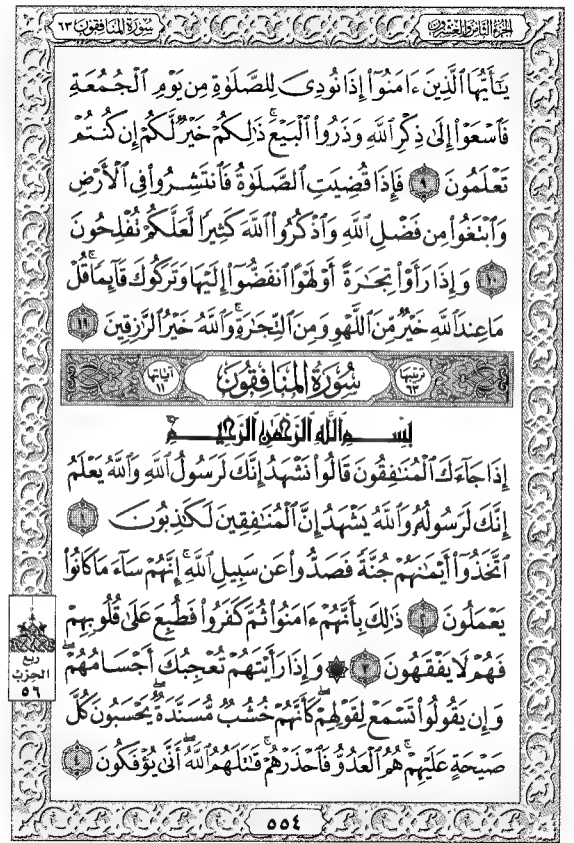 الجزء الثامن والعشرون
سورة المنافقون ٦٣
يَٰٓأَيُّهَا ٱلَّذِينَ ءَامَنُوٓا۟ إِذَا نُودِىَ لِلصَّلَوٰةِ مِن يَوْمِ ٱلْجُمُعَةِ
فَٱسْعَوْا۟ إِلَىٰ ذِكْرِ ٱللَّهِ وَذَرُوا۟ ٱلْبَيْعَ ۚ ذَٰلِكُمْ خَيْرٌ لَّكُمْ إِن كُنتُمْ
تَعْلَمُونَ ٩ فَإِذَا قُضِيَتِ ٱلصَّلَوٰةُ فَٱنتَشِرُوا۟ فِى ٱلْأَرْضِ
وَٱبْتَغُوا۟ مِن فَضْلِ ٱللَّهِ وَٱذْكُرُوا۟ ٱللَّهَ كَثِيرًا لَّعَلَّكُمْ تُفْلِحُونَ
١٠ وَإِذَا رَأَوْا۟ تِجَٰرَةً أَوْ لَهْوًا ٱنفَضُّوٓا۟ إِلَيْهَا وَتَرَكُوكَ قَآئِمًا ۚ قُلْ
مَا عِندَ ٱللَّهِ خَيْرٌ مِّنَ ٱللَّهْوِ وَمِنَ ٱلتِّجَٰرَةِ ۚ وَٱللَّهُ خَيْرُ ٱلرَّٰزِقِينَ ١١
ترتيبها ٦٣ سُورَةُ المُنَافِقُون آياتها ١١
بِسْمِ ٱللَّهِ ٱلرَّحْمَٰنِ ٱلرَّحِيمِ
إِذَا جَآءَكَ ٱلْمُنَٰفِقُونَ قَالُوا۟ نَشْهَدُ إِنَّكَ لَرَسُولُ ٱللَّهِ ۗ وَٱللَّهُ يَعْلَمُ
إِنَّكَ لَرَسُولُهُۥ وَٱللَّهُ يَشْهَدُ إِنَّ ٱلْمُنَٰفِقِينَ لَكَٰذِبُونَ ١
ٱتَّخَذُوٓا۟ أَيْمَٰنَهُمْ جُنَّةً فَصَدُّوا۟ عَن سَبِيلِ ٱللَّهِ ۚ إِنَّهُمْ سَآءَ مَا كَانُوا۟
يَعْمَلُونَ ٢ ذَٰلِكَ بِأَنَّهُمْ ءَامَنُوا۟ ثُمَّ كَفَرُوا۟ فَطُبِعَ عَلَىٰ قُلُوبِهِمْ
فَهُمْ لَا يَفْقَهُونَ ٣ ۞ وَإِذَا رَأَيْتَهُمْ تُعْجِبُكَ أَجْسَامُهُمْ ۖ
وَإِن يَقُولُوا۟ تَسْمَعْ لِقَوْلِهِمْ ۖ كَأَنَّهُمْ خُشُبٌ مُّسَنَّدَةٌ ۖ يَحْسَبُونَ كُلَّ
صَيْحَةٍ عَلَيْهِمْ ۚ هُمُ ٱلْعَدُوُّ فَٱحْذَرْهُمْ ۚ قَٰتَلَهُمُ ٱللَّهُ ۖ أَنَّىٰ يُؤْفَكُونَ ٤
ربع
الحزب
٥٦
٥٥٤